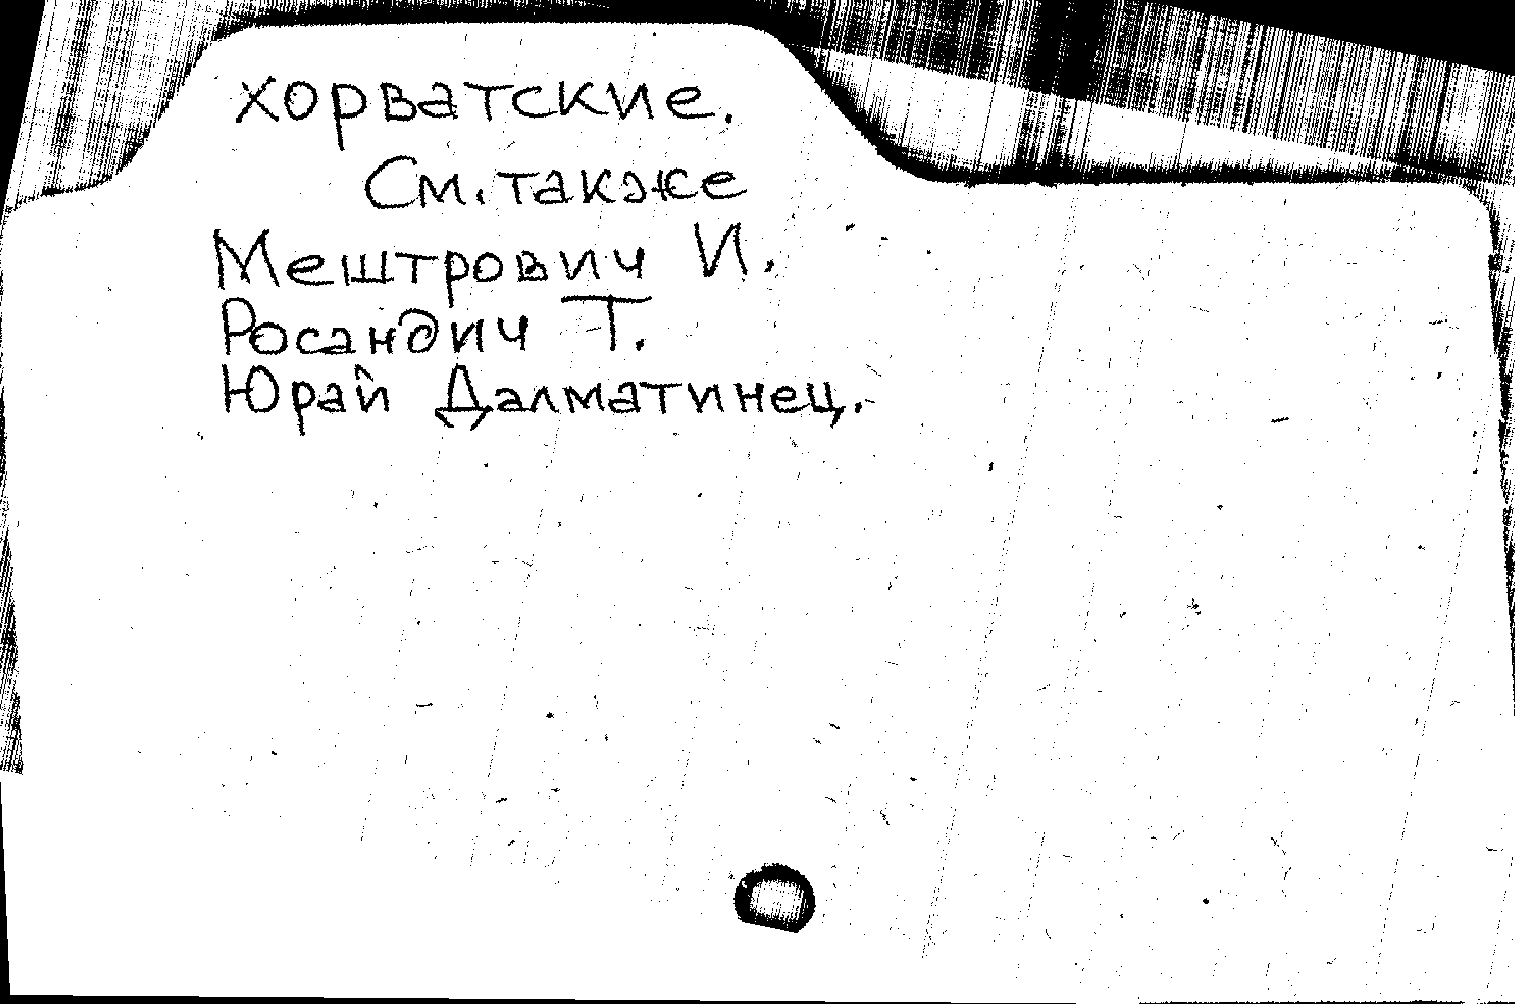 хорватские.
См. также
Мештрович И.
Росандич Т.
Юрай Далматинец.